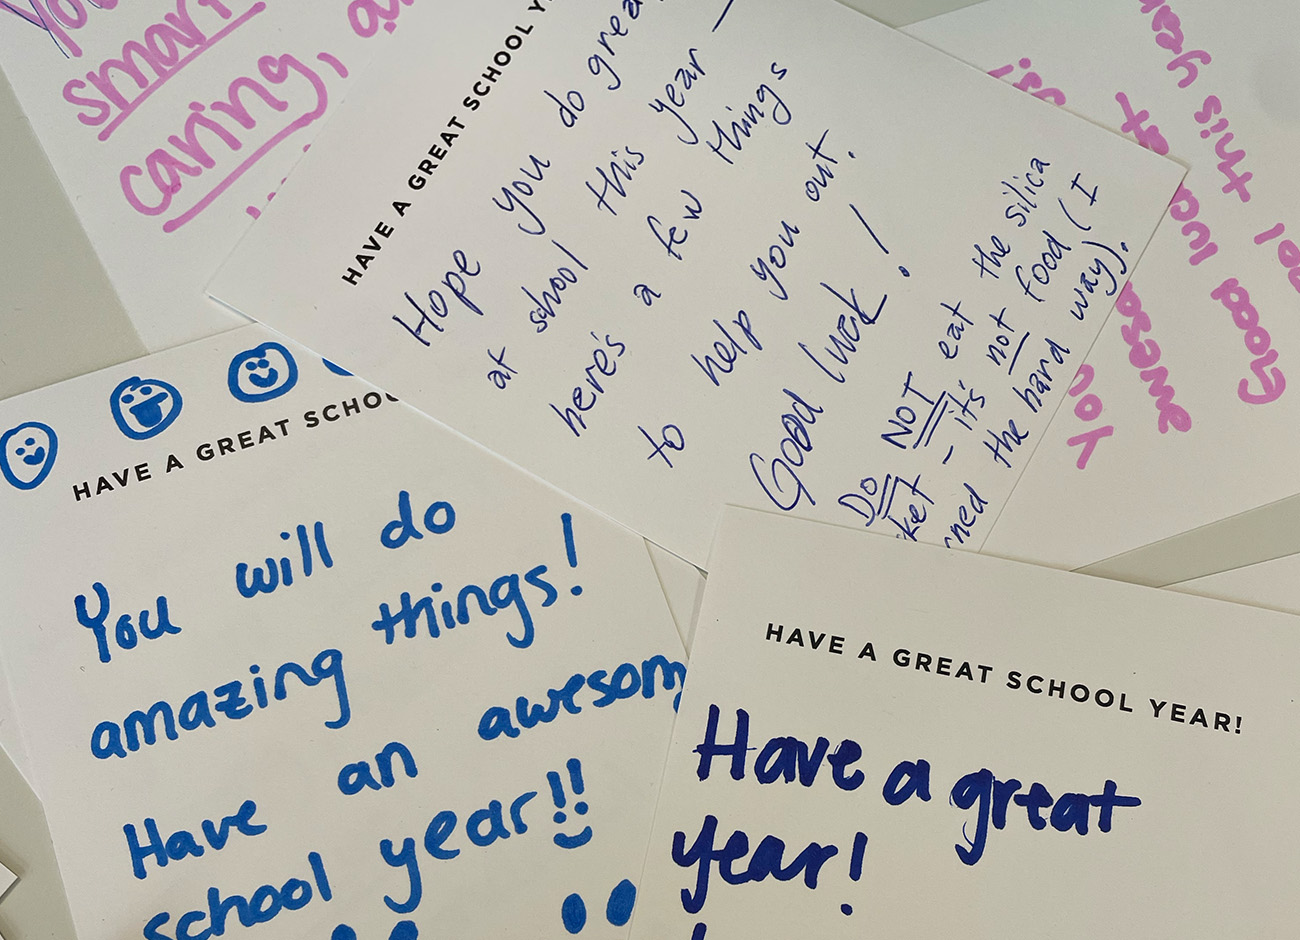 smart
caring,
HAVE A GREAT SCHOOL
Hope you do great
at school this year —
here's a few things
to help you out.
Good luck!
Do NOT eat the silica
- it's not food (I
the hard way).
this year
Good luck
awesome
You
HAVE A GREAT SCHOOL
You will do
amazing things!
Have an awesom
school year!!
HAVE A GREAT SCHOOL YEAR!
Have a great
year!